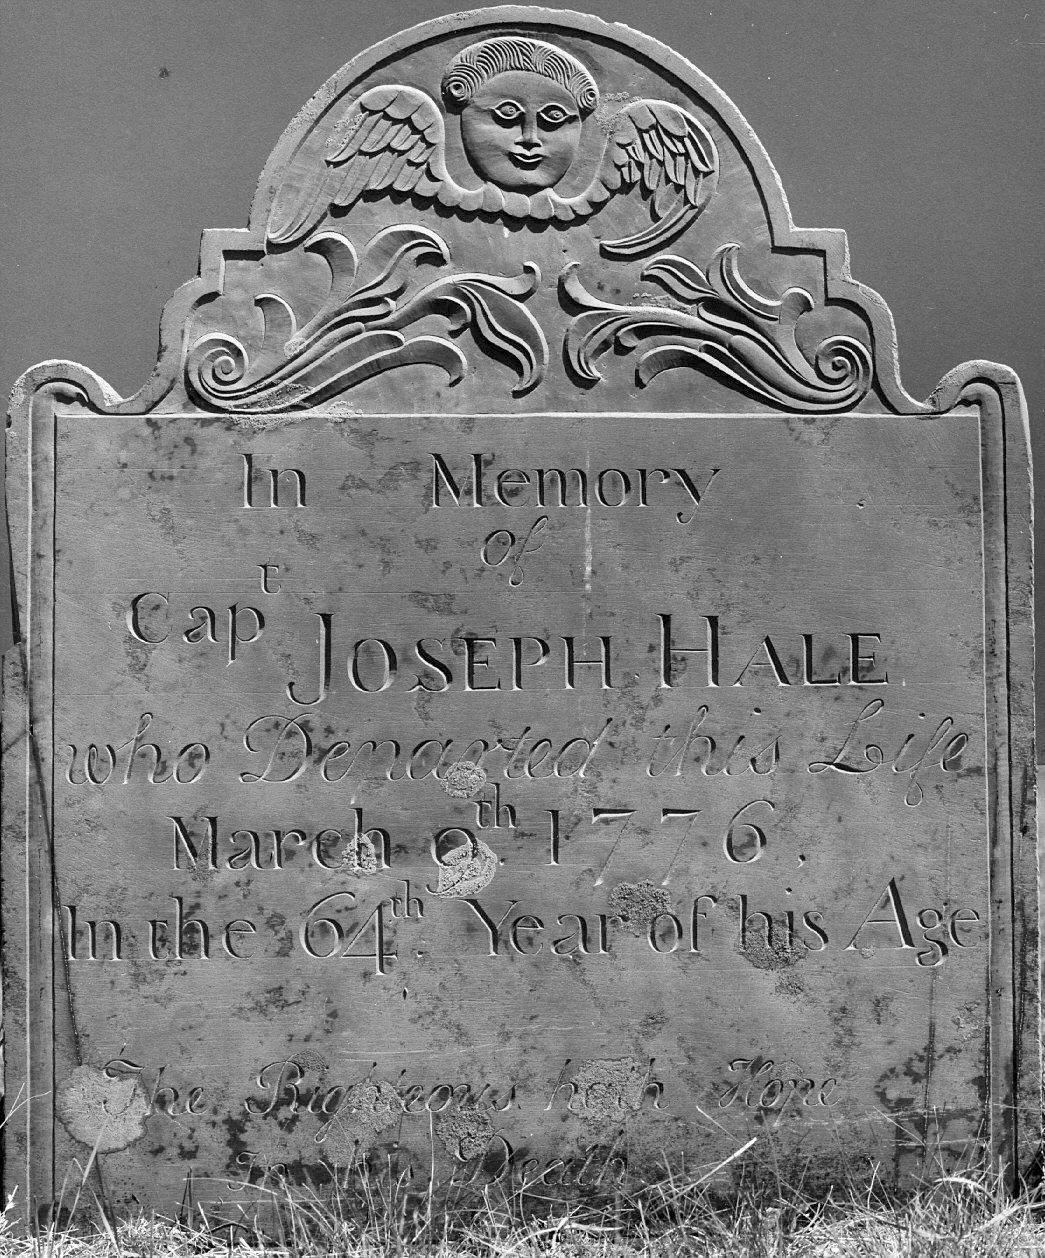 In Memory
of
Capt JOSEPH HALE
who Departed this Life
March 9th 1776,
In the 64th Year of his Age
The Righteous hath Hope
In his Death